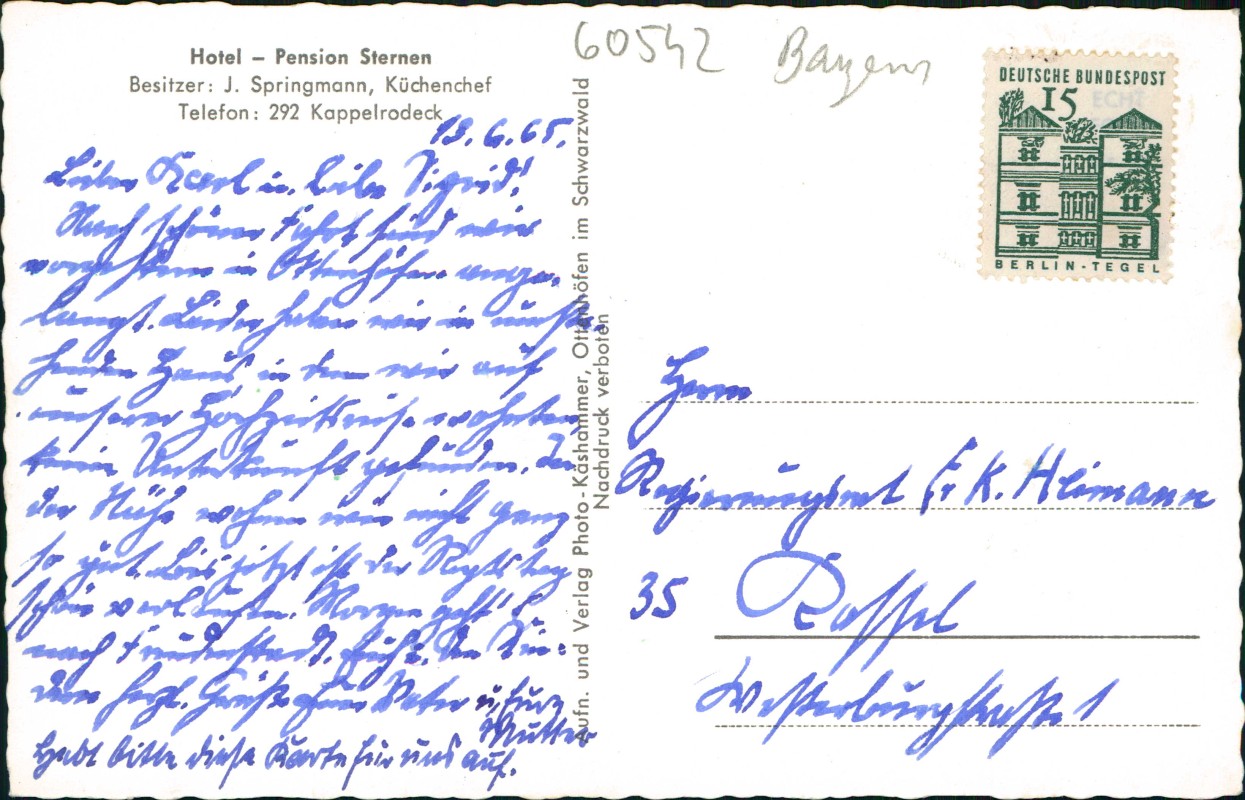 60542 Bayern
Hotel – Pension Sternen
Besitzer: J. Springmann, Küchenchef
Telefon: 292 Kappelrodeck
DEUTSCHE BUNDESPOST
15
BERLIN-TEGEL
13.6.65.
Lieber Karl u. liebe Sigrid!
Nach schöner Fahrt sind wir
vorgestern in Ottenhöfen ange-
langt. Leider haben wir in umste-
henden Haus, in dem wir auf
unserer Hochzeitsreise wohnten,
keine Unterkunft gefunden. In
der Nähe wohnen wir nicht ganz
so gut. Bis jetzt ist der
schön verlaufen. Morgen geht's
nach Freudenstadt. Euch u. den Kin-
dern herzl. Grüße Euer Vater u. Eure
Mutter
Hebt bitte diese Karte für uns auf.
Aufn. und Verlag Photo-Käshammer, Ottenhöfen im Schwarzwald
Nachdruck verboten
Herrn
Regierungsrat K. Heimann
35 Kassel